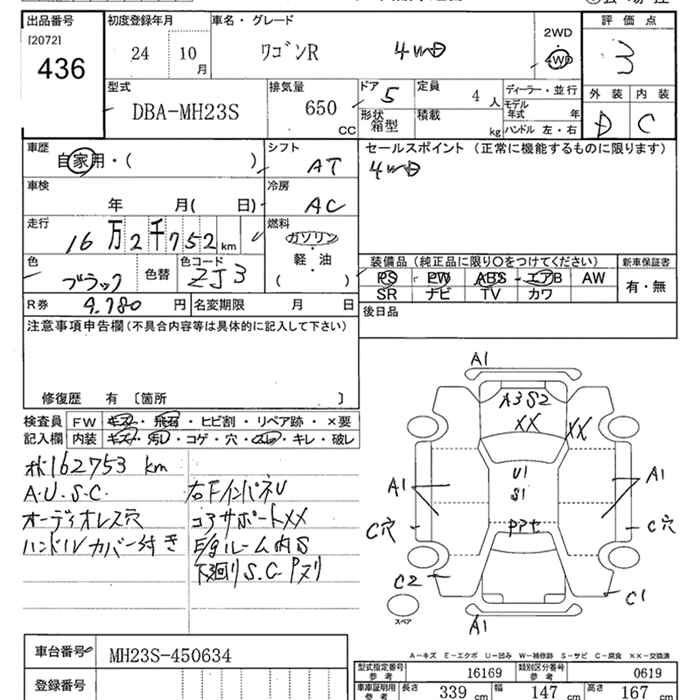 出品番号 初度登録年月 車名・グレード 評価点
[2072]
436
24 10月 ワゴンR 4WD 2WD 4WD 3
型式 DBA-MH23S
排気量 650 CC
ドア 5 定員 4人 ディーラー・並行
形状 箱型 積載 kg モデル年式 年
ハンドル 左・右
外装 内装
D C
車歴 自家用・( )
シフト AT
セールスポイント (正常に機能するものに限ります)
4WD
車検 年 月( 日)
冷房 AC
走行 16万2千752km
燃料 ガソリン
軽・油
( )
色 ブラック 色替 色コード ZJ3
装備品(純正品に限り○をつけてください) 新車保証書
PS PW ABS エアB AW 有・無
SR ナビ TV カワ
R券 9,780円 名変期限 月 日
後日品
注意事項申告欄(不具合内容等は具体的に記入して下さい)
修復歴 有 〔箇所 〕
検査員 FW キズ・飛石・ヒビ割・リペア跡・×要
記入欄 内装 キズ・汚レ・コゲ・穴・スレ・キレ・破レ
162753 km
A.U.S.C. 右FインパネU
オーディオレス穴 コアサポートXX
ハンドルカバー付き E/gルーム内S
下廻りS.C.Pヌリ
A1
A3 S2
XX XX
U1
S1
A1 A1
C穴 C穴
C2 C1
A1
スペア
車台番号 MH23S-450634
登録番号
A-キズ E-エクボ U-凹み W-補修跡 S-サビ C-腐食 XX-交換済
型式指定番号 参考 16169 類別区分番号 参考 0619
車庫証明用 参考 長さ 339cm 幅 147cm 高さ 167cm